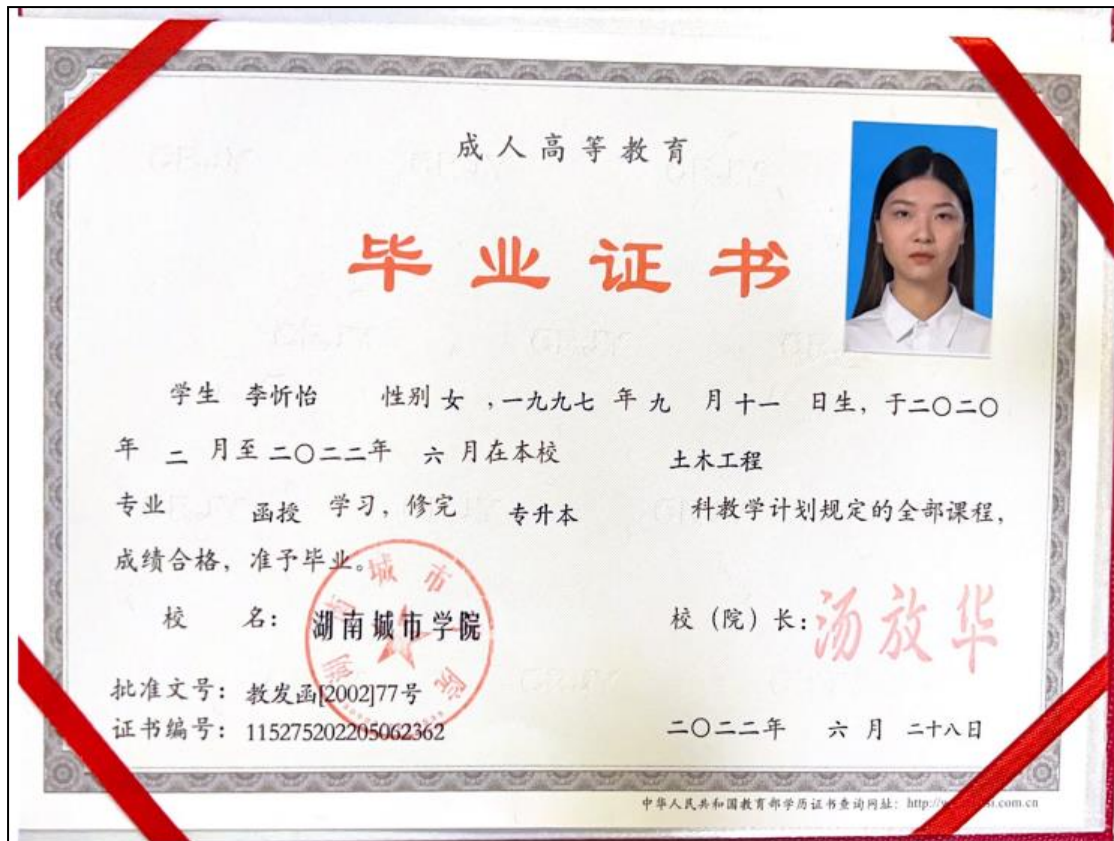 成人高等教育
毕业证书
学生 李忻怡 性别 女 ,一九九七 年 九 月 十一 日生，于二〇二〇
年 二 月至 二〇二二年 六 月在本校 土木工程
专业 函授 学习，修完 专升本 科教学计划规定的全部课程，
成绩合格，准予毕业。
校 名： 湖南城市学院 校（院）长：汤放华
湖南城市学院
批准文号：教发函[2002]77号
证书编号：115275202205062362 二〇二二年 六 月 二十八日
中华人民共和国教育部学历证书查询网址：http://w .com.cn